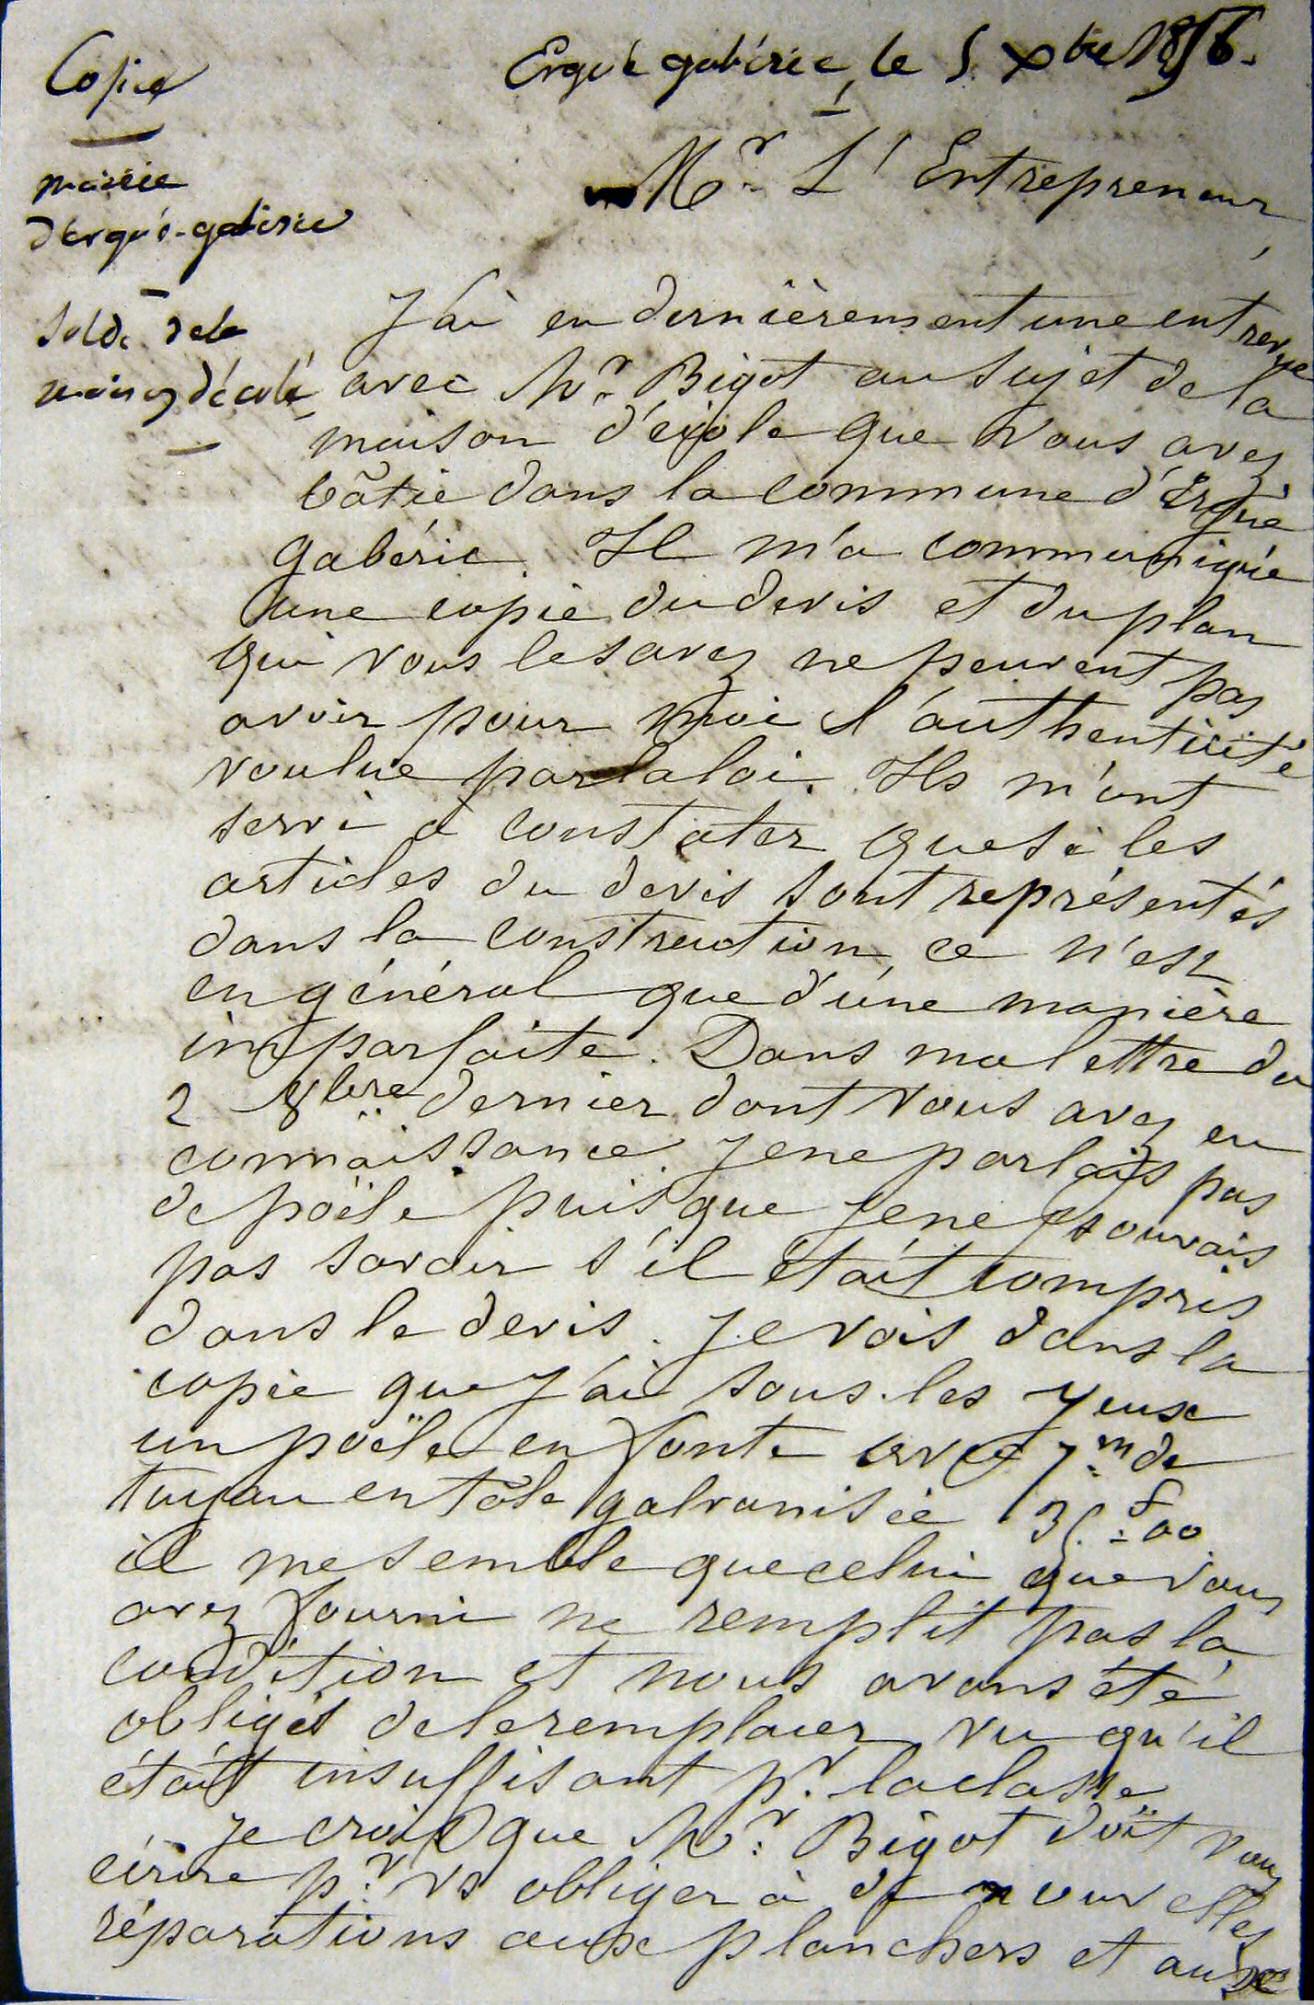 Copie
Ergué gabéric, le 5 Xbre 1856.
mairie
d'Ergué-gabéric
Mr. L'Entrepreneur,
Solde de la
maison d'école
J'ai eu dernièrement une entrevue
avec Mr. Bigot au sujet de la
maison d'école que vous avez
bâtie dans la commune d'Ergué
gabéric. Il m'a communiquée
une copie du devis et du plan
qui vous le savez ne peuvent pas
avoir pour moi l'authenticité
voulue par la loi. Ils m'ont
servi à constater que si les
articles du devis sont représentés
dans la construction, ce n'est
en général que d'une manière
imparfaite. Dans ma lettre du
2 8bre dernier dont vous avez eu
connaissance. Je ne parlais pas
de poële puisque je ne pouvais
pas savoir s'il était compris
dans le devis. Je vois dans la
copie que j'ai sous les yeux
un poële en fonte avec 7m de
tuyau en tôle galvanisée 35.f00
il me semble que celui que vous
avez fourni ne remplit pas la
condition et nous avons été
obligés de le remplacer vu qu'il
était insuffisant pr. la classe
Je crois que Mr. Bigot doit vous
écrire pr. vs obliger à de nouvelles
réparations aux planchers et aux